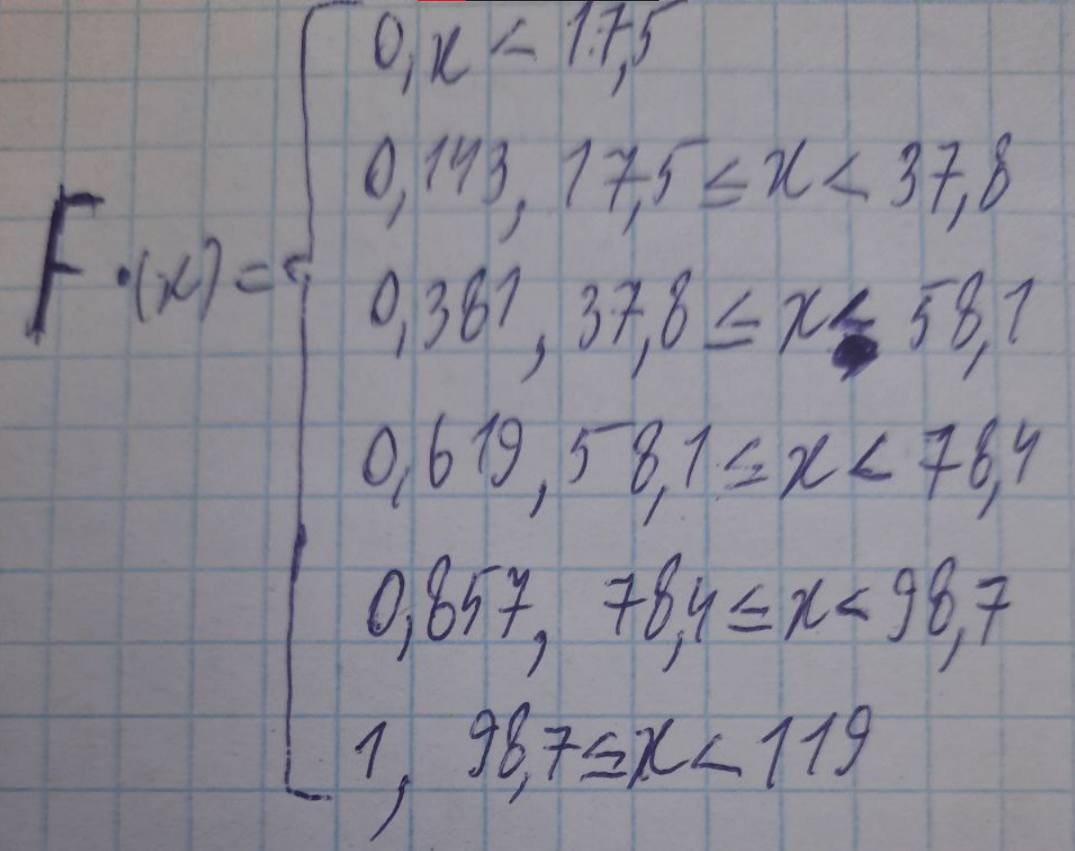 0, x < 17,5
0,143, 17,5 ≤ x < 37,8
F*(x) =
0,381, 37,8 ≤ x < 58,1
0,619, 58,1 ≤ x < 78,4
0,857, 78,4 ≤ x < 98,7
1, 98,7 ≤ x < 119